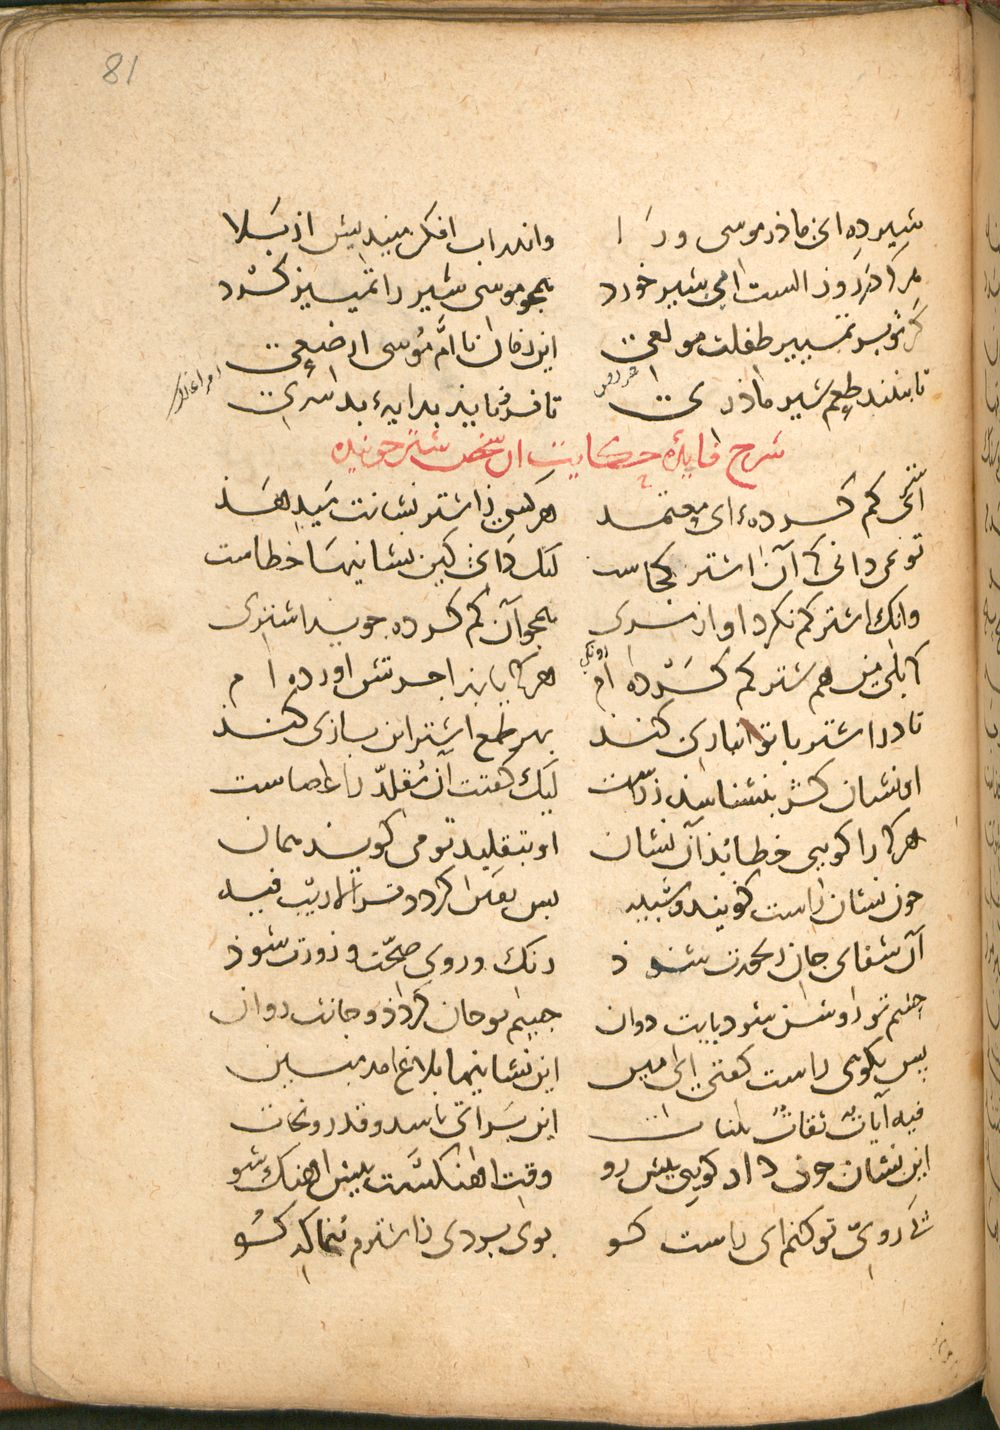 81
شیر ده ای ماذر موسی ورا واندر اب افکن میندیش از بلا
هرک در روز الست ان شیر خورد همجو موسی شیر را تمییز کرد
کر تو بر تمییز طفلت مولعی این زمان یا ام موسی ارضعی
تا ببیند طعم شیر ماذرش تا فرو نایذ بدایه بد سرش
شرح فایدۀ حکایت ان شخص شتر جوینده
اشتری کم کردۀ ای معتمد هر کسی ز اشتر نشانت میدهذ
تو نمی دانی که آن اشتر کجاست لیک دانی کین نشانیها خطاست
وانک اشتر کم نکرد او از مری همجو آن کم کرده جوید اشتری
که بلی من هم شتر کم کرده ام هر که یابد اجرتش اورده ام
تا در اشتر با تو انبازی کند بهر طمع اشتر این بازی کند
او نشان کژ بنشناسد ز راست لیک کفتت آن مقلد را عصاست
هرکه را کویی خطا بذ آن نشان او بتقلید تو می کوید همان
جون نشان راست کویند و شبیه بس یقین کردد ترا لا ریب فیه
آن شفای جان رنجورت شوذ رنک و روی صحت و زورت شوذ
جشم تو روشن شود پایت دوان جسم تو جان کردذ و جانت روان
بس بکویی راست کفتی ای امین این نشانیها بلاغ امد مبین
فیه آیات ثقات بینات این براتی باشد و قدر و نجات
این نشان جون داد کویی بیش رو وقت اهنکست بیش اهنک شو
بی روی تو کنم ای راست کو بوی بردی ز اشترم بنما که کو